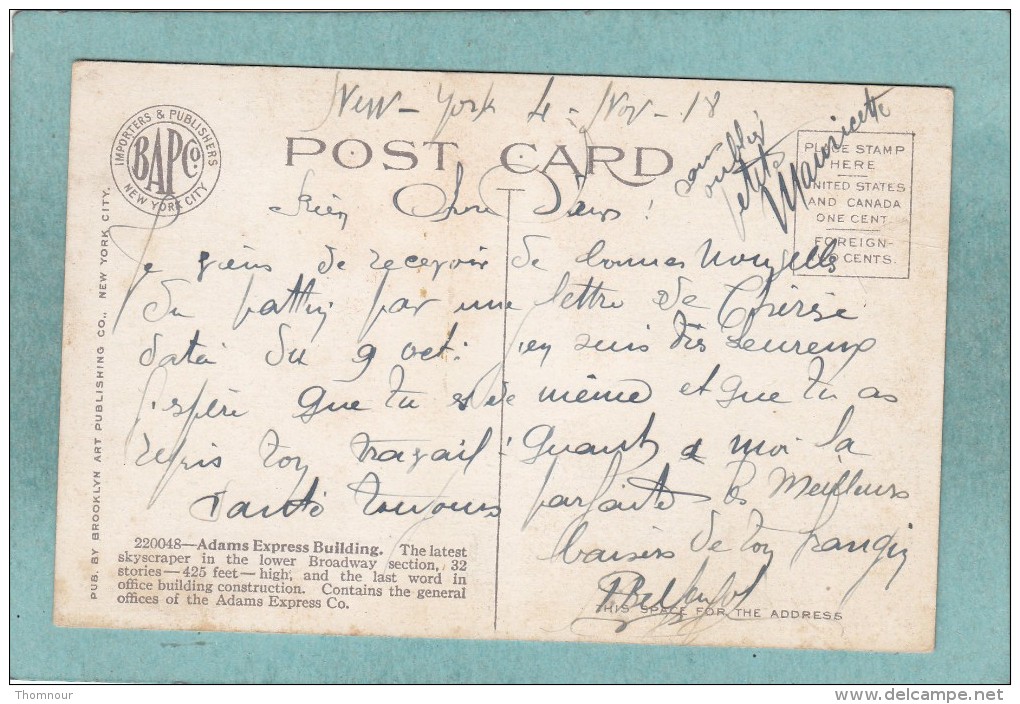 New-York 4-Nov-18
sans
oublier
petite
Mauricette
IMPORTERS & PUBLISHERS
BAPCo.
NEW YORK CITY
POST CARD
PLACE STAMP
HERE
UNITED STATES
AND CANADA
ONE CENT
FOREIGN-
TWO CENTS.
Bien Chère
Je viens de recevoir de bonnes Nouvelles
du par une lettre de
daté du 9 oct. j'en suis très heureux
j'espère que tu es de même et que tu as
repris ton travail! Quant à moi la
santé toujours parfaite Les Meilleurs
baisers de ton
PUB. BY BROOKLYN ART PUBLISHING CO., NEW YORK CITY.
220048—Adams Express Building. The latest
skyscraper in the lower Broadway section, 32
stories—425 feet—high, and the last word in
office building construction. Contains the general
offices of the Adams Express Co.
THIS SPACE FOR THE ADDRESS
Thomnour
delcampe.net